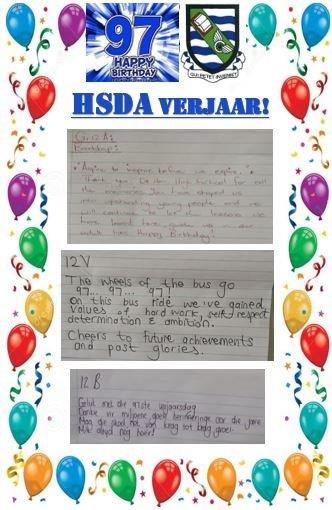 97
HAPPY
BIRTHDAY
QUI PETET INVENIET
HSDA VERJAAR!
Gr 12 A:
Boodskap:
"Aspire to inspire before we expire."
Thank you High School for all
the memories. You have shaped us
into upstanding young people and we
will continue to let the lessons we
have learnt here guide us in our
adult lives. Happy Birthday!
12 V
The wheels of the bus go
97... 97... 97!
On this bus ride we've gained
values of hard work, self respect
determination & ambition.
Cheers to future achievements
and past glories.
12 B
Geluk met die 97ste verjaarsdag
Dankie vir miljoene goeie herinneringe oor die jare.
Mag die skool net van krag tot krag groei.
Mik altyd nog hoër!